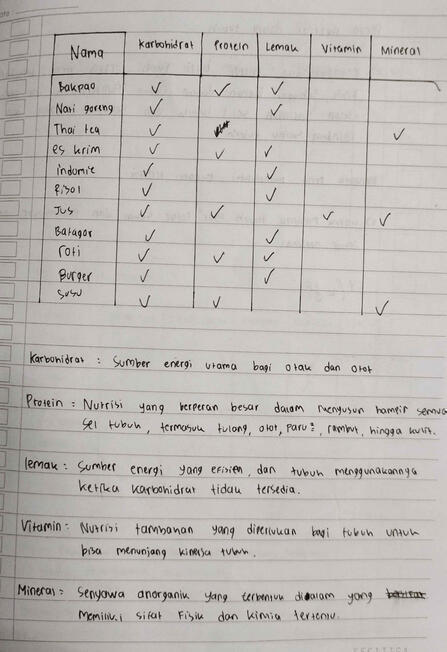 Nama Karbohidrat Protein Lemak Vitamin Mineral
Bakpao ✓ ✓ ✓
Nasi goreng ✓ ✓
Thai tea ✓ ✓
es krim ✓ ✓ ✓
indomie ✓ ✓
Risol ✓ ✓
Jus ✓ ✓ ✓ ✓
Batagor ✓ ✓
roti ✓ ✓ ✓
Burger ✓ ✓
susu ✓ ✓ ✓
Karbohidrat : Sumber energi utama bagi otak dan otot
Protein : Nutrisi yang berperan besar dalam menyusun hampir semua
sel tubuh, termasuk tulang, otot, paru², rambut, hingga kulit.
lemak : Sumber energi yang efisien, dan tubuh menggunakannya
ketika karbohidrat tidak tersedia.
Vitamin : Nutrisi tambahan yang diperlukan bagi tubuh untuk
bisa menunjang kinerja tubuh.
Mineral : Senyawa anorganik yang terbentuk didalam yang
memiliki sifat Fisik dan kimia tertentu.